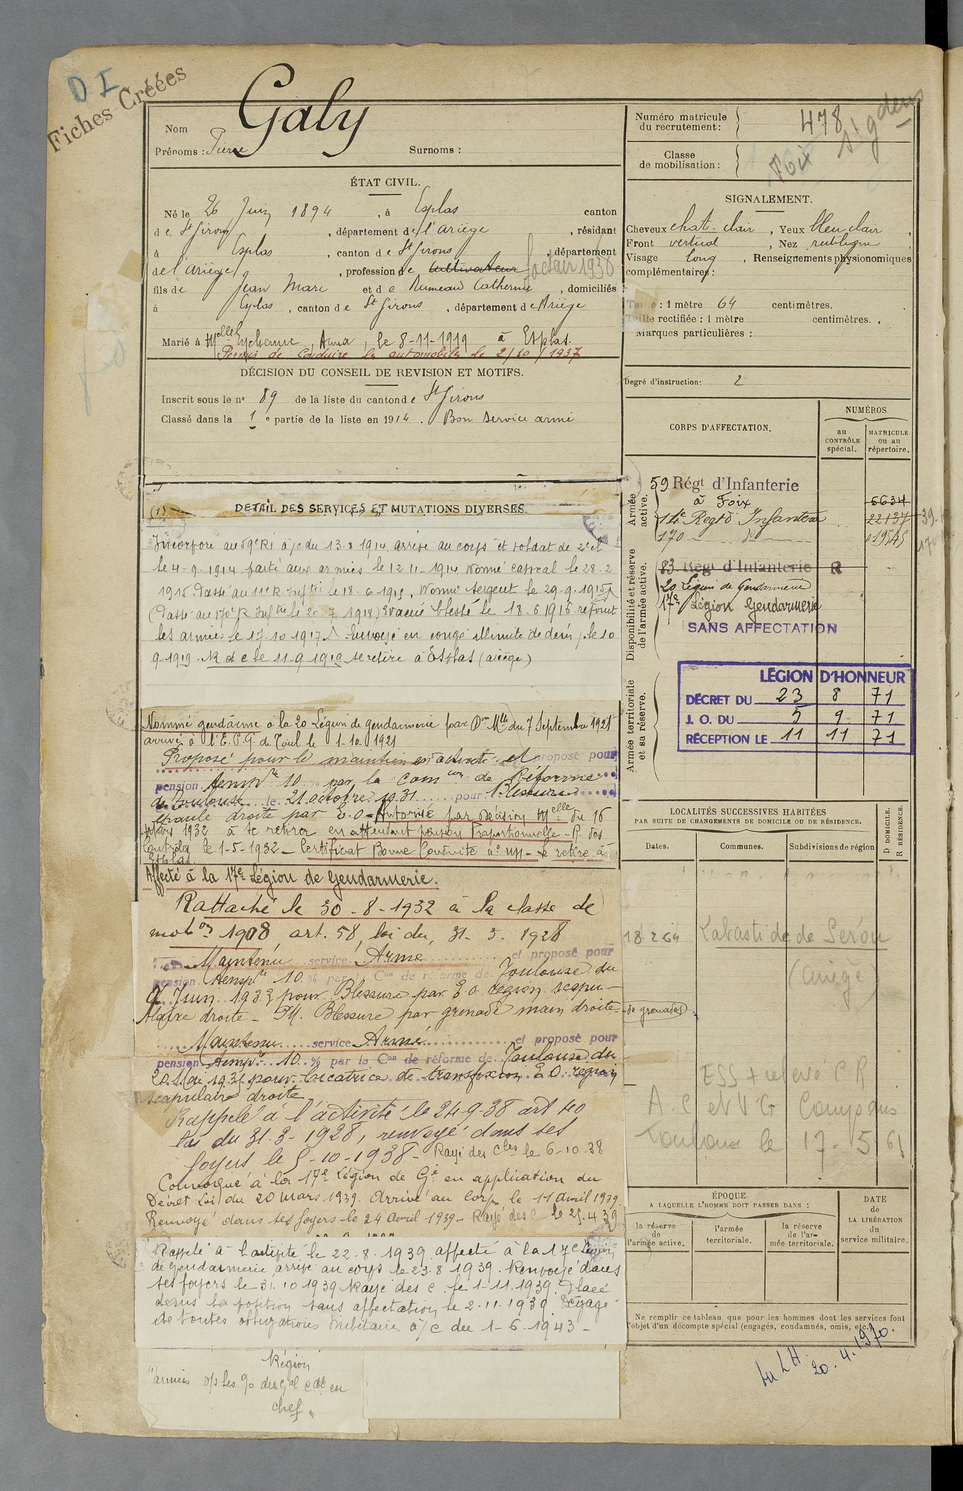 D I
Fiches Créées
Nom Galy
Prénoms : Pierre Surnoms :
ÉTAT CIVIL.
Né le 26 Juin 1894, à Esplas canton
de St Girons, département de l'Ariège, résidant
à Esplas, canton de St Girons, département
de l'Ariège, profession de cultivateur facteur 1938
fils de Jean Marc et de Rumeau Catherine, domiciliés
à Esplas, canton de St Girons, département de Ariège
Marié à Melle Eychenne, Anna, le 8-11-1919 à Esplas.
Permis de conduire les automobiles le 2/10/1937
DÉCISION DU CONSEIL DE REVISION ET MOTIFS.
Inscrit sous le n° 89 de la liste du canton de St Girons
Classé dans la 1e partie de la liste en 1914. Bon service armé
(1) DETAIL DES SERVICES ET MUTATIONS DIVERSES.
Incorporé au 59e RI à/c du 13.8.1914 arrivé au corps et soldat de 2e cl
le 4-9-1914 parti aux armées le 12 11-1914 nommé caporal le 28-2
1915 Passé au 11e R. Inftie le 18.6.1915, Nommé sergent le 29.9.1915
(Passé au 170e R Inftie le 20.7.1918) Evacué blessé le 18.6.1915 rejoint
les armées le 17.10.1917. Renvoyé en congé illimité de dém, le 10
9-1919 le 11-9-1919 se retire à Esplas (ariège)
Nommé gendarme à la 20 Légion de Gendarmerie par Don Mlle du 7 Septembre 1921
arrivé à l'E.P.G de Toul le 1-10-1921
Proposé pour le maintien en activité et proposé pour
pension temp're 10 par la Comon de Réforme
de Toulouse le 21 octobre 1931 pour Blessure
épaule droite par E.O. Autorisé par décision Mlle du 16
1932 à se retirer en attendant pension Proportionnelle - R. des
Contrôles le 1-5-1932 - Certificat Bonne Conduite - se retire à
Esplas.
Affecté à la 17e Légion de Gendarmerie.
Rattaché le 30-8-1932 à la classe de
mobon 1908 art. 58, loi du 31-3-1928
Maintenu service Armé et proposé pour
pension temp're 10 % par la Con de réforme de Toulouse du
9 Juin 1933 pour Blessure par E O région scapu-
laire droite - Blessure par grenade main droite
Maintenu service Armé et proposé pour
pension temp're 10 % par la Con de réforme de Toulouse du
1935 pour cicatrice de transfixion E O région
scapulaire droite
Rappelé à l'activité le 24-9-38 art 40
loi du 31-3-1928, renvoyé dans ses
foyers le 5-10-1938 - Rayé des cles le 6-10-38
Convoqué à la 17e Légion de Gie en application du
Décret Loi du 20 mars 1939. Arrivé au corps le 11 avril 1939
Renvoyé dans ses foyers le 24 avril 1939 - Rayé des c le 25.4.39
Rappelé à l'activité le 22.8.1939 affecté à la 17e Légion
de gendarmerie arrivé au corps le 23.8.1939. Renvoyé dans
ses foyers le 31.10.1939 Rayé des c. le 1-11-1939. Placé
dans la position sans affectation le 2.11.1939 Dégagé
de toutes obligations militaires à/c du 1-6-1943 -
Région
armées o/s les 90 des Gal Cdt en
chef
Numéro matricule
du recrutement : 478
Classe
de mobilisation :
Foix
SIGNALEMENT.
Cheveux chat. clair, Yeux bleu clair,
Front vertical, Nez rectiligne,
Visage long, Renseignements physionomiques
complémentaires :
Taille : 1 mètre 64 centimètres.
Taille rectifiée : 1 mètre centimètres.
Marques particulières :
Degré d'instruction : 2
CORPS D'AFFECTATION.
NUMÉROS
au
CONTRÔLE
spécial.
MATRICULE
ou au
répertoire.
Armée
active.
59 Régt d'Infanterie
à Foix
6634
14e Regt d'Infanterie 22137
170 - d° - 01945
Disponibilité et réserve
de l'armée active.
83 Régt d'Infanterie R
20 Légion de Gendarmerie
17e Légion Gendarmerie
SANS AFFECTATION
LÉGION D'HONNEUR
DÉCRET DU 23 8 71
J. O. DU 5 9 71
RÉCEPTION LE 11 11 71
Armée territoriale
et sa réserve.
LOCALITÉS SUCCESSIVES HABITÉES
PAR SUITE DE CHANGEMENTS DE DOMICILE OU DE RÉSIDENCE.
Dates. Communes. Subdivisions de région
D DOMICILE.
R RÉSIDENCE.
18.2.64 Labastide de Sérou
(Ariège
de grenades)
A.C et VG
Toulouse le 17-5-61
ÉPOQUE
A LAQUELLE L'HOMME DOIT PASSER DANS :
la réserve
de
l'armée active.
l'armée
territoriale.
la réserve
de l'ar-
mée territoriale.
DATE
de
LA LIBÉRATION
du
service militaire.
Ne remplir ce tableau que pour les hommes dont les services font
l'objet d'un décompte spécial (engagés, condamnés, omis, etc.).
Au LH 20.4.1970.